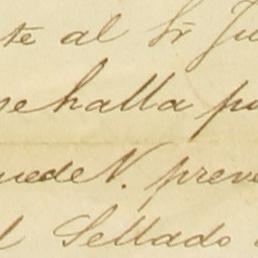 te al Sr Ju
se halla pu
uede V. preve
l Sellado